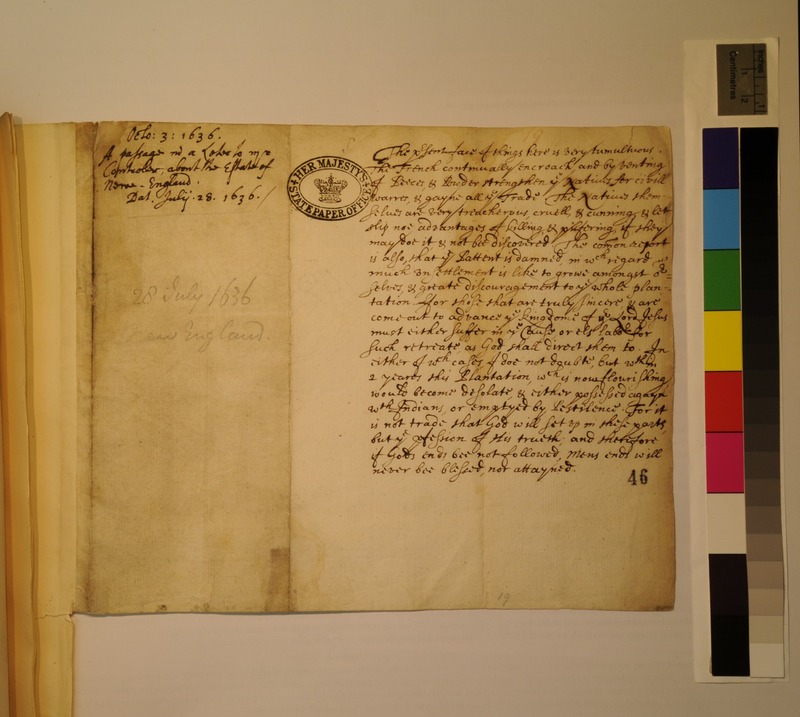 Octo: 3: 1636.
A passage in a Letter to mr
about the Estate of
Newe-England.
Dat. July. 28. 1636./
HER MAJESTY'S
STATE PAPER OFFICE
28 July 1636
New England
The psent face of things here is very tumultuous.
The French continually encroach, and by venting
of Peeces & Powder strengthen ye Natives for civill
warrs, & gayne all ye Trade. The Natives them
selves are very treacherous, cruell, & cunning, & let
slip noe advantages of killing & pilfering, if they
may doe it & not bee discovered. The comon report
is also, that ye Pattent is damned, in wch regard
much unsettlement is like to growe amongst or
selves, & great discouragement to ye whole plan-
tation. For those that are truly sincere, & are
come out to advance ye kingdome of ye Lord Jesus
must either suffer in ye Cause or els labor for
such retreate as God shall direct them to. In
either of wch cases I doe not doubte, but wthin
2 yeares this Plantation, wch is now flourishing
would become desolate, & either possessed agayn
wth Indians, or emptyed by Pestilence. For it
is not trade that God will set up in these parts,
but ye pfession of His trueth, and therefore
if Gods ends bee not followed, Mens ends will
never bee blessed, nor attayned.
46
19
Centimetres
Inches
1
2